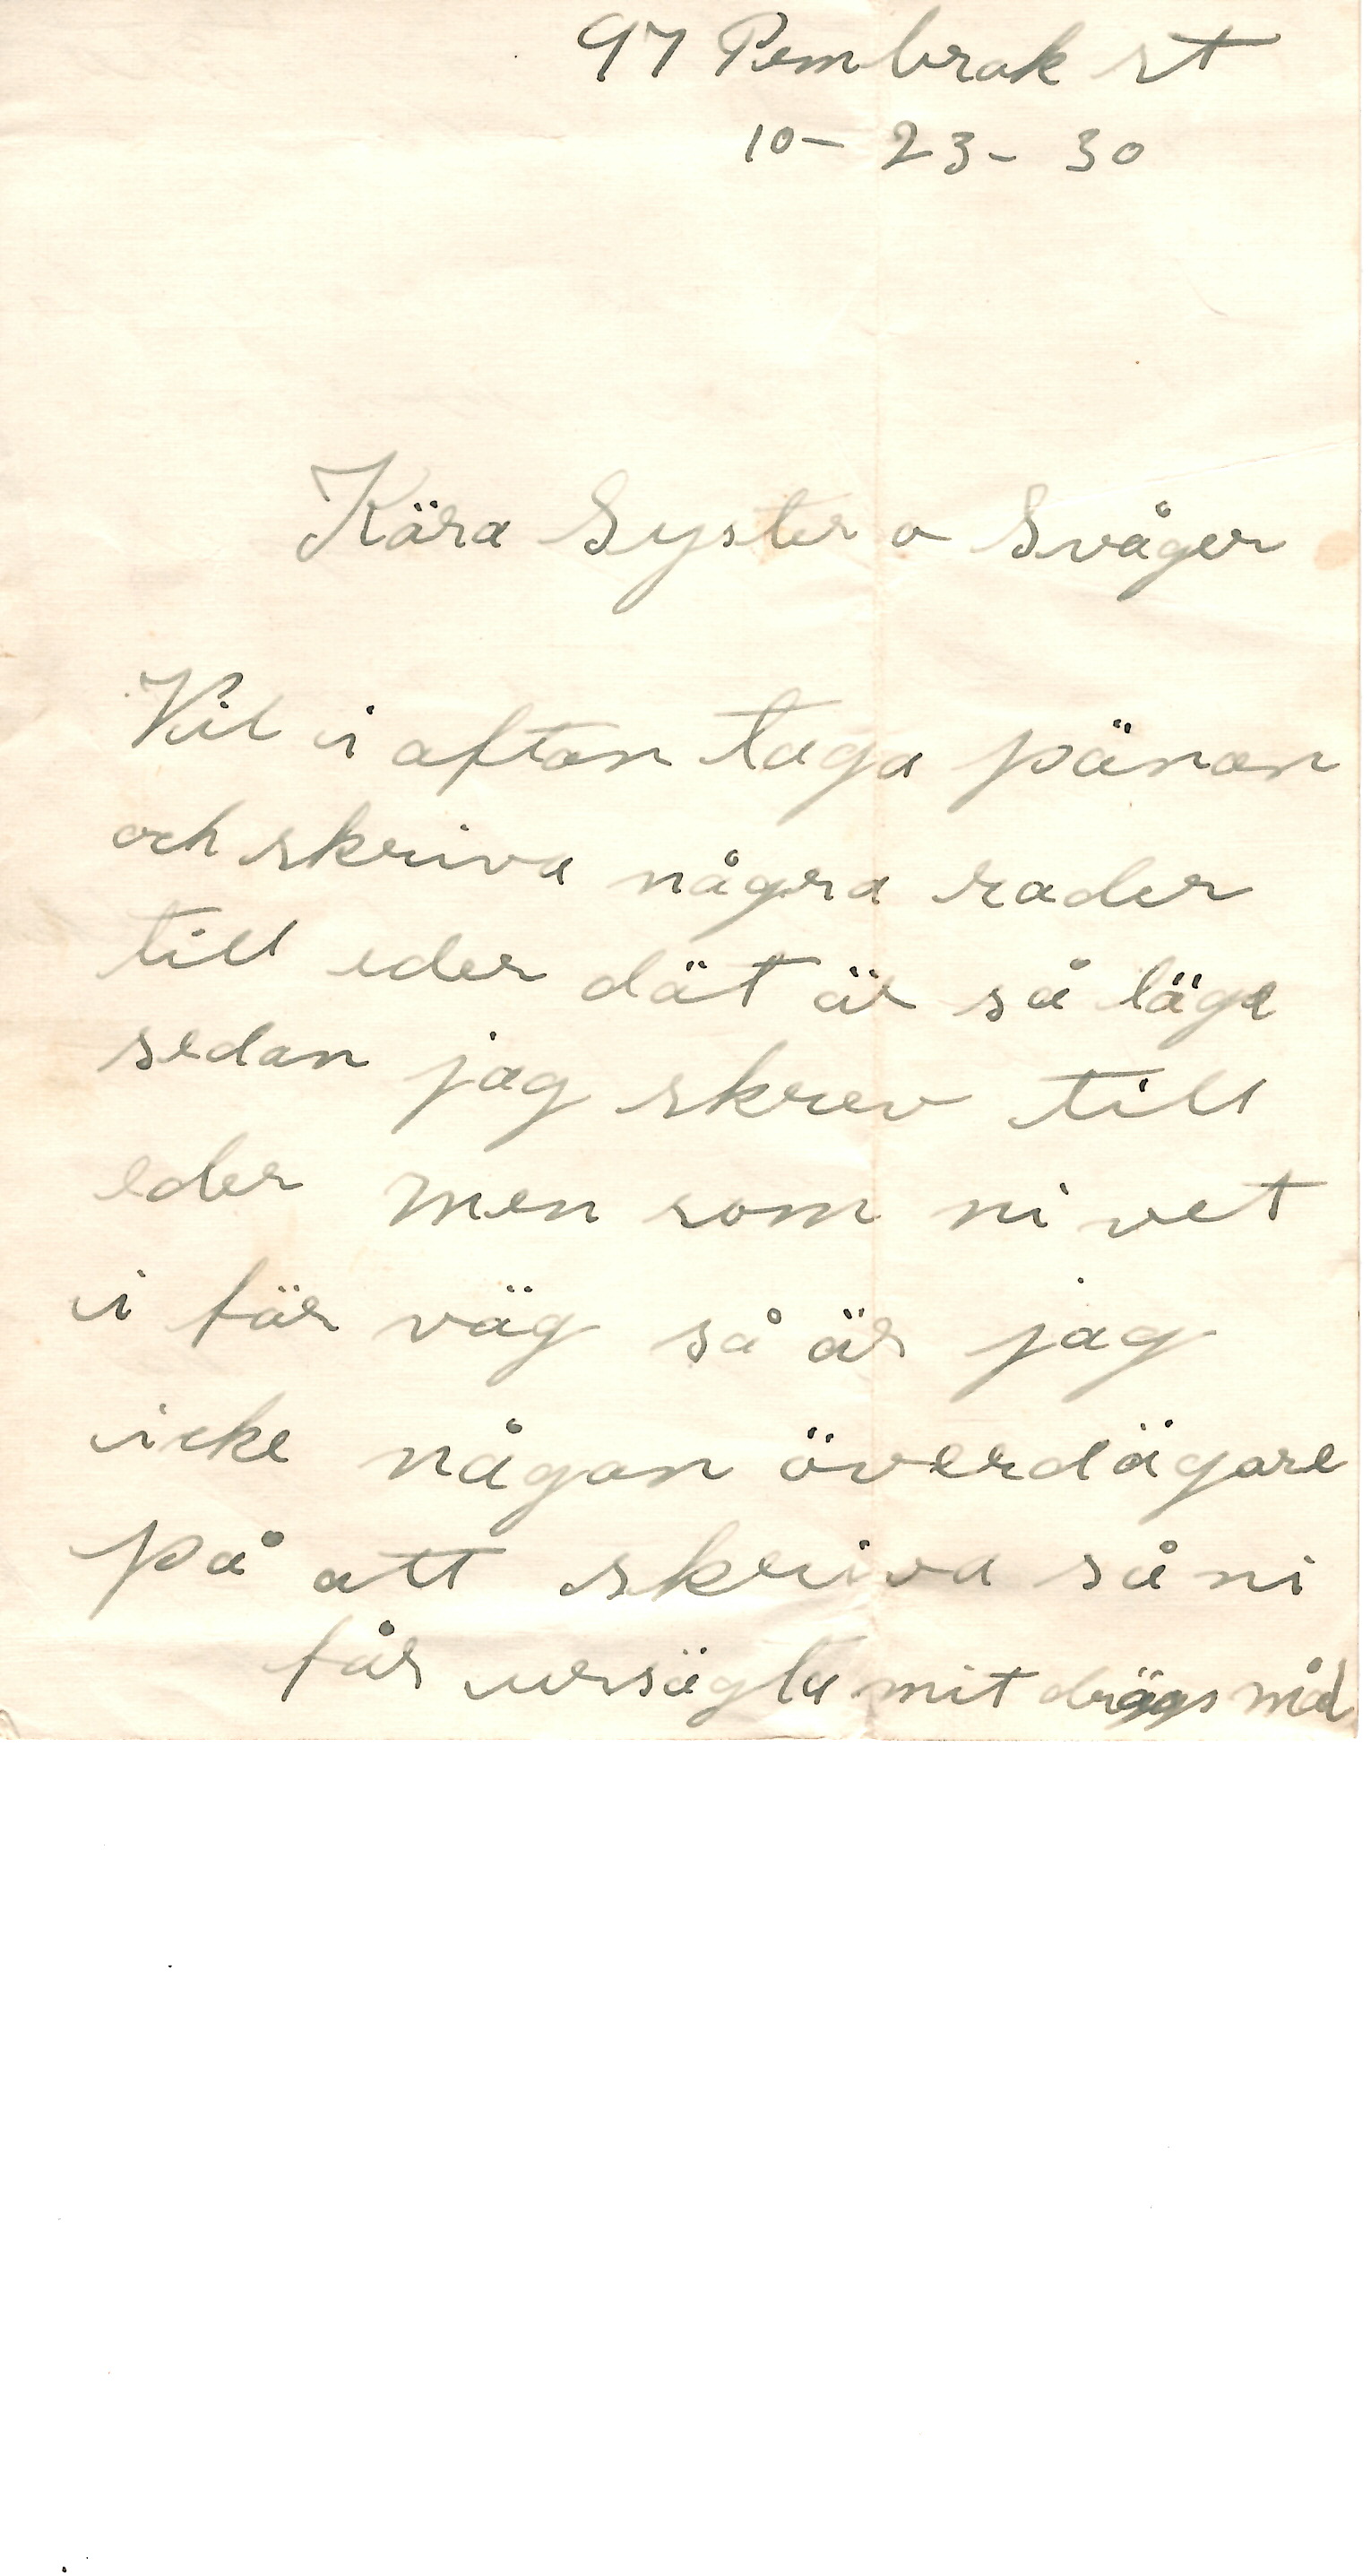 97 Pembrok st
10- 23- 30
Kära Syster o Svåger
Vil i afton taga pänan
och skriva några rader
till eder dät är så läge
sedan jag skrev till
eder men som ni vet
i för väg så är jag
icke någon överdågare
på att skriva så ni
får ursägta mit drögs mål